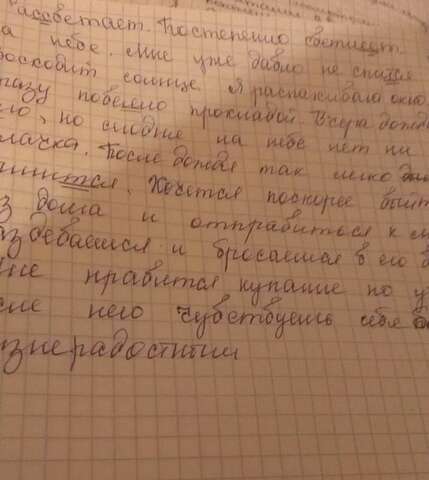 Рассветает. Постепенно светлеет
а небе. Мне уже давно не спится
роскобит солнце. Я распахиваю окно
разу повеяло прохладой. Вчера дожд
ло, но сегодня на небе нет ни
лачка. После дождя так легко ды
шится. Хочется поскорее выйт
з дома и отправиться к
аздеваешся и бросаешся в его
не нравится купание по у
сле него чувствуешь себя
знерадостным